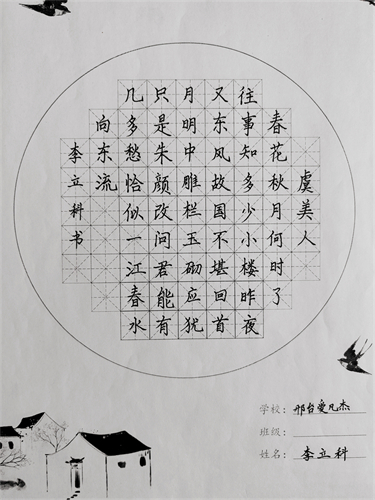 虞美人
春花秋月何时了
往事知多少小楼昨夜
又东风故国不堪回首
月明中雕栏玉砌应犹
只是朱颜改问君能有
几多愁恰似一江春水
向东流
李立科书
学校：邢台凡杰
班级：
姓名：李立科